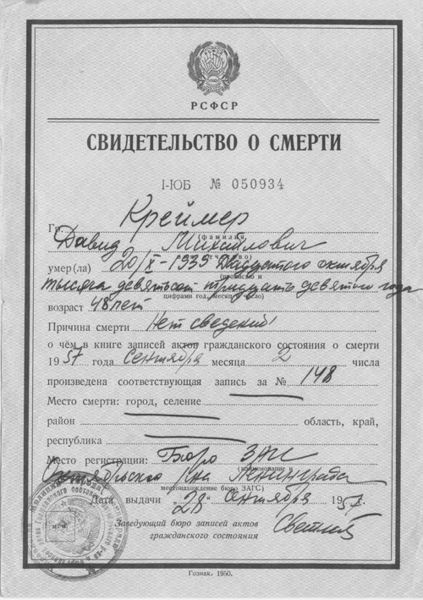 РСФСР
СВИДЕТЕЛЬСТВО О СМЕРТИ
I-ЮБ № 050934
Гр. Креймер
(фамилия,
Давид Михайлович
умер(ла) 20/X-1939 Двадцатого октября
(прописью и
тысяча девятьсот тридцать девятого года
цифрами год, месяц и число)
возраст 48 лет
Причина смерти Нет сведений
о чём в книге записей актов гражданского состояния о смерти
1957 года Сентября месяца 2 числа
произведена соответствующая запись за № 148
Место смерти: город, селение
район область, край,
республика
Место регистрации: Бюро ЗАГС
(наименование и
Октябрьского р-на Ленинграда
местонахождение бюро ЗАГС)
Дата выдачи 28 сентября 1957
Заведующий бюро записей актов
гражданского состояния
Гознак. 1950.